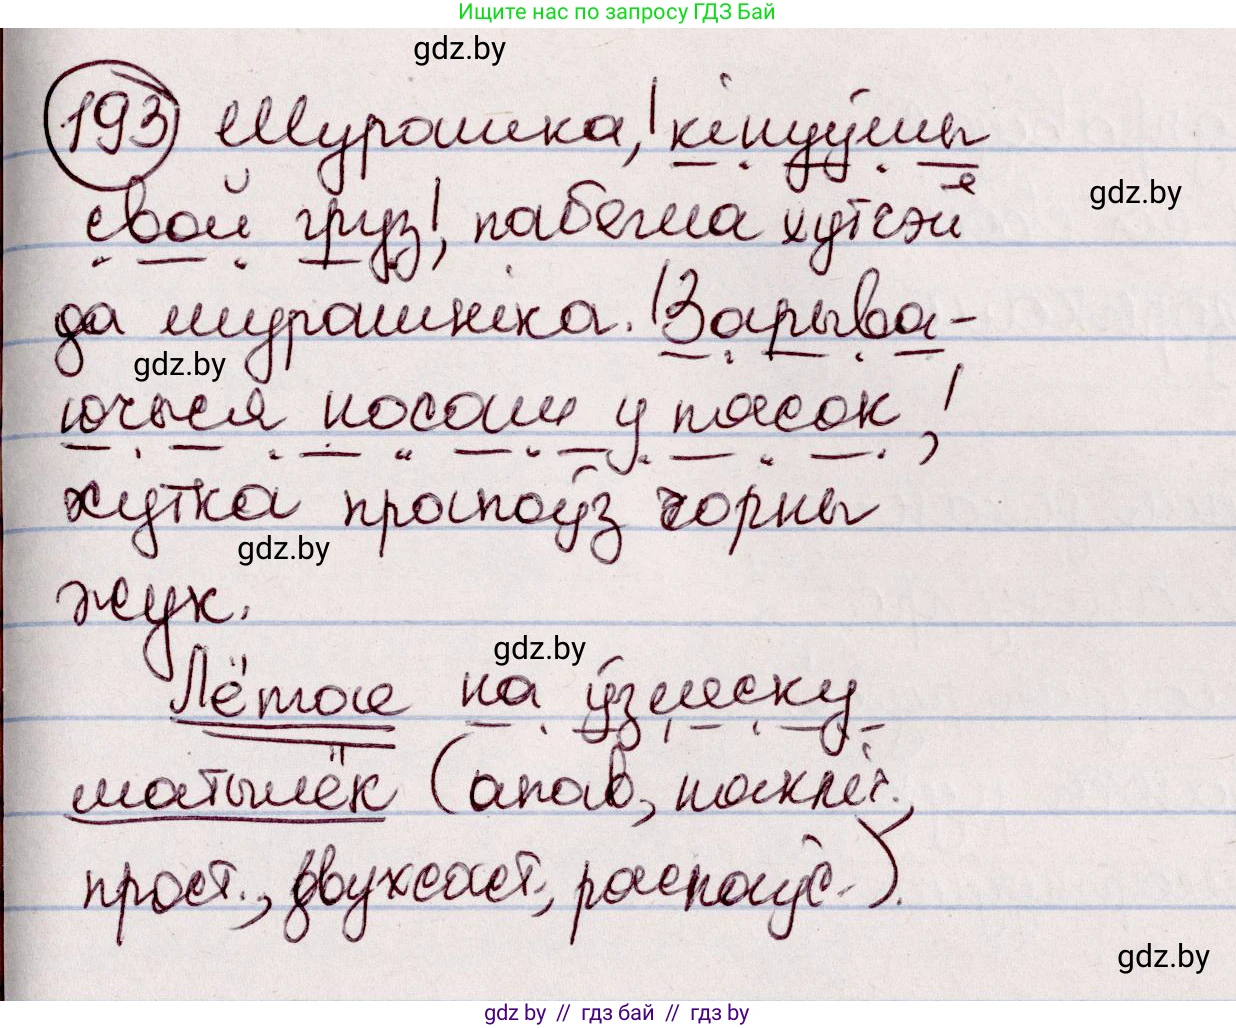 Ищите нас по запросу ГДЗ Бай
gdz.by
193 Мурашка, кінуўшы
gdz.by
свой груз, пабегла хутчэй
да мурашніка. Зарыва-
gdz.by
ючыся носам у пясок,
хутка прапоўз чорны
gdz.by
жук.
gdz.by
Лётае на ўзлеску
матылёк (апав., няклічн.,
прост., двухсаст., распаўс.).
gdz.by
gdz.by // гдз бай // гдз by